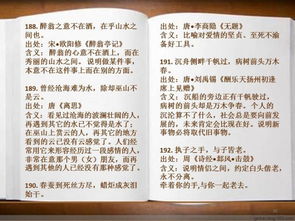 188. 醉翁之意不在酒，在乎山水之
间也。
出处：宋·欧阳修《醉翁亭记》
含义：醉翁的心意不在酒上，而在
秀丽的山水之间。 说明做某件事，
本意不在这件事上而在别的方面。
189. 曾经沧海难为水，除却巫山不
是云。
出处：唐《离思》
含义：看见过沧海的波澜壮阔的人，
再遇到其它的水已不觉得是水了；
在巫山上赏云的人，再其它的地方
看到的云已没有云感觉了。人们经
常用它来形容经历过一段感情的人，
非常在意那个男（女）朋友，而再
遇到其他的人已经没有那种感觉了。
190. 春蚕到死丝方尽，蜡炬成灰泪
始干。
出处：唐·李商隐《无题》
含义：比喻对爱情的坚贞、至死不渝
备好工具。
191. 沉舟侧畔千帆过，病树前头万
木春。
出处：唐·刘禹锡《酬乐天扬州初逢
席上见赠》
含义：沉船的旁边正有千帆驶过，
病树的前头却是万木争春。个人的
沉沦算不了什么，社会总是要向前发
展的，未来肯定会比现在好。说明新
事物必将取代旧事物。
192. 执子之手，与子偕老。
出处：周《诗经·邶风·击鼓》
含义：说明情侣之间，约定白头偕老，
永不分离。
牵着你的手，与你一起老去。